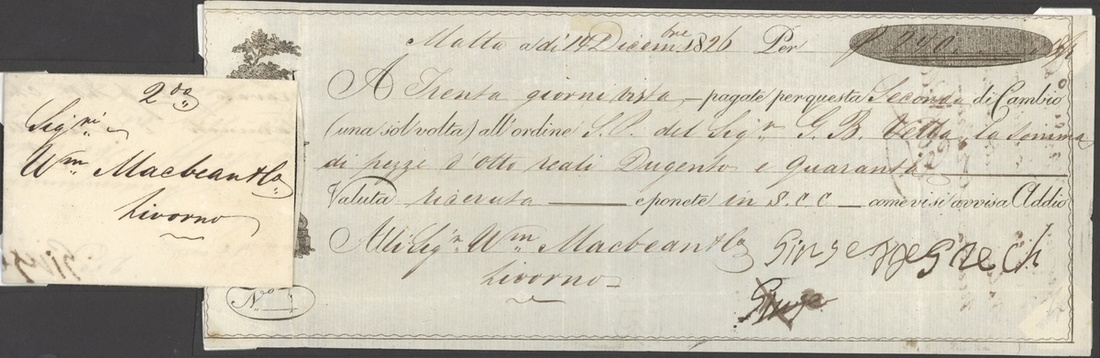 2da
Sigri
Wm Macbean & Co
Livorno
Malta a dì 14 Dicembre 1826 Per P 240
A Trenta giorni vista pagate per questa Seconda di Cambio
(una sol volta) all'ordine S. P. del Sigr G. B. Vella la somma
di pezze d'otto reali Dugento e quaranta
Valuta ricevuta e ponete in S. C C come vi si avvisa Addio
Alli Sigri Wm Macbean & Co
Livorno
No 1